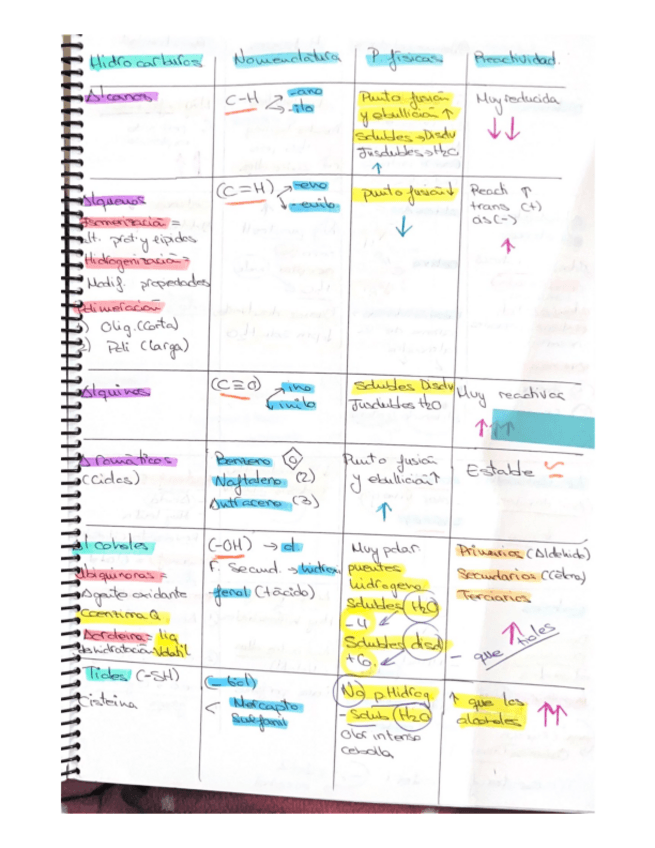 Hidrocarburos Nomenclatura P. físicas Reactividad.
Alcanos
C-H -ano
-ilo
Punto fusión
y ebullición ↑
Solubles → Disolv
Insolubles → H2O
↑
Muy reducida
↓↓
Alquenos
Isomerización =
alt. prot. y lípidos
Hidrogenización =
Modif. propiedades
Polimeración
1) Olig. (corta)
2) Poli (larga)
(C=H) -eno
-enilo
punto fusión ↓
↓
Reach ↑
trans (+)
as (-)
↑
Alquinos
(C≡O) ino
inilo
Solubles Disolv
Insolubles H2O
Muy reactivos
↑↑↑
Aromáticos
(Ciclos)
Benceno
Naftaleno (2)
Antraceno (3)
Punto fusión
y ebullición ↑
↑
Estable
Alcoholes
Ubiquinonas =
Agente oxidante
Coenzima Q
Acroleína = liq
deshidratación volátil
(-OH) → ol
F. Secund. → hidrox
fenol (+ácido)
Muy polar
puentes
hidrógeno
Solubles H2O
-4
Solubles disol
+6.
Primarios (Aldehído)
Secundarios (Cetona)
Terciarios
↑
- que tioles
Tioles (-SH)
Cisteína
(-tiol)
< Mercapto
Sulfanil
No p.Hidrog
- Solub H2O
Olor intenso
cebolla
↑ que los
alcoholes ↑↑